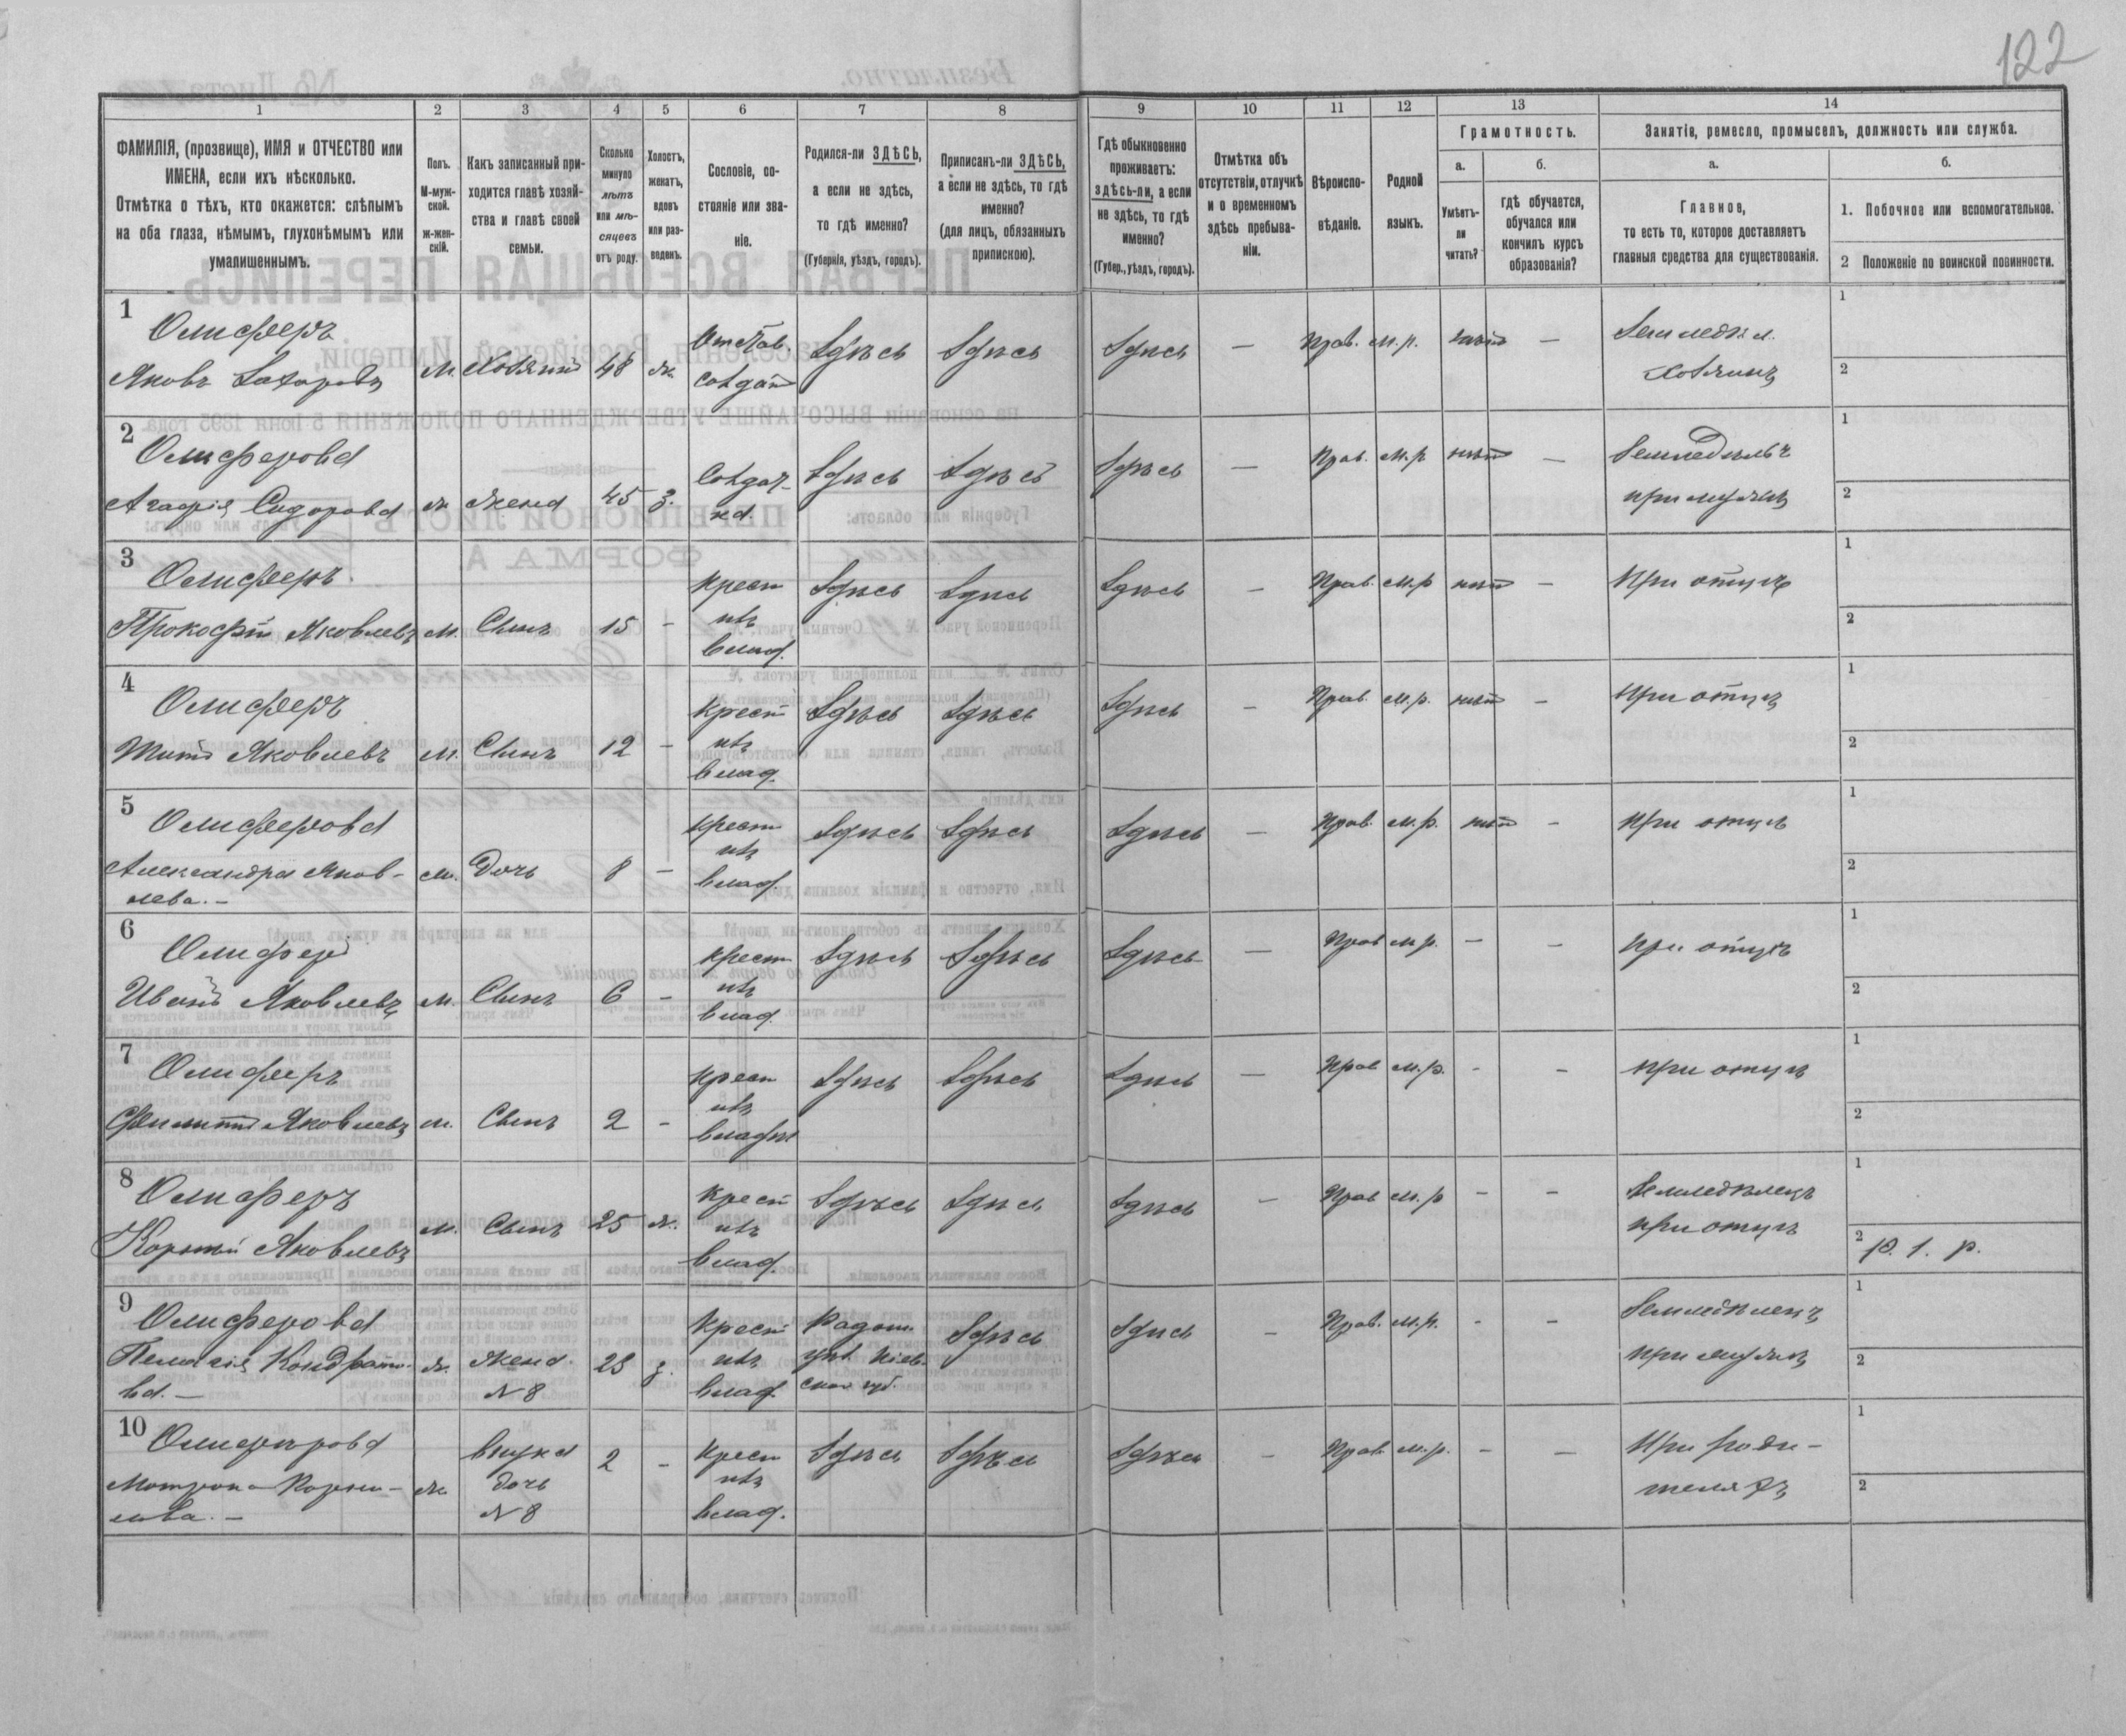 122
1 2 3 4 5 6 7 8 9 10 11 12 13 14
ФАМИЛІЯ, (прозвище), ИМЯ и ОТЧЕСТВО или
ИМЕНА, если ихъ нѣсколько.
Отмѣтка о тѣхъ, кто окажется: слѣпымъ
на оба глаза, нѣмымъ, глухонѣмымъ или
умалишеннымъ.
Полъ.
М-муж-
ской.
ж-жен-
скій.
Какъ записанный при-
ходится главѣ хозяй-
ства и главѣ своей
семьи.
Сколько
минуло
лѣтъ
или мѣ-
сяцевъ
отъ роду.
Холостъ,
женатъ,
вдовъ
или раз-
веденъ.
Сословіе, со-
стояніе или зва-
ніе.
Родился-ли ЗДѢСЬ,
а если не здѣсь,
то гдѣ именно?
(Губернія, уѣздъ, городъ).
Приписанъ-ли ЗДѢСЬ,
а если не здѣсь, то гдѣ
именно?
(для лицъ, обязанныхъ
припискою).
Гдѣ обыкновенно
проживаетъ:
здѣсь-ли, а если
не здѣсь, то гдѣ
именно?
(Губер., уѣздъ, городъ).
Отмѣтка объ
отсутствіи, отлучкѣ
и о временномъ
здѣсь пребыва-
ніи.
Вѣроиспо-
вѣданіе.
Родной
языкъ.
Грамотность.
а.
Умѣетъ-
ли
читать?
б.
гдѣ обучается,
обучался или
кончилъ курсъ
образованія?
Занятіе, ремесло, промыселъ, должность или служба.
а.
Главное,
то есть то, которое доставляетъ
главныя средства для существованія.
б.
1. Побочное или вспомогательное.
2 Положеніе по воинской повинности.
1
Олиферъ
Яковъ Захаровъ
М. Хозяинъ 48 ж.
Отстав.
солдатъ
Здѣсь Здѣсь Здѣсь — Прав. М.р. нѣтъ —
Земледѣл.
хозяинъ
1
2
2
Олиферова
Агафія Сидорова
ж жена 45 з.
Солдат-
ка.
Здѣсь Здѣсь Здѣсь — Прав. М.р нѣтъ —
Земледѣльч
при мужѣ
1
2
3
Олиферъ
Прокофій Яковлевъ
М. Сынъ 15 -
крест
изъ
влад.
Здѣсь Здѣсь Здѣсь — Прав. М.р нѣтъ —
при отцѣ
1
2
4
Олиферъ
Титъ Яковлевъ
М. Сынъ 12 -
крест
изъ
влад.
Здѣсь Здѣсь Здѣсь — Прав. М.р. нѣтъ —
при отцѣ
1
2
5
Олиферова
Александра Яков-
лева. —
М. Дочь 8 —
крест
изъ
влад.
Здѣсь Здѣсь Здѣсь — Прав. М.р. нѣтъ —
при отцѣ
1
2
6
Олиферъ
Иванъ Яковлевъ
М. Сынъ 6 -
крест
изъ
влад.
Здѣсь Здѣсь Здѣсь — Прав М.р. — —
при отцѣ
1
2
7
Олиферъ
Филиппъ Яковлевъ
м. Сынъ 2 -
крест
изъ
влад
Здѣсь Здѣсь Здѣсь — Прав М.р. - -
при отцѣ
1
2
8
Олиферъ
Корнилій Яковлевъ
м. Сынъ 25 ж.
Крест
изъ
влад.
Здѣсь Здѣсь Здѣсь — Прав М.р — —
Земледѣлецъ
при отцѣ
1
2 р. 1. р.
9
Олиферова
Пелагія Кондрать-
ва. —
ж. жена.
N 8
25 з.
Крест
изъ
влад.
Радом.
узд. Кіев.
ской губ.
Здѣсь Здѣсь — Прав. М.р. - -
Земледѣлецъ
при мужѣ
1
2
10
Олиферова
Мотрона Корни-
лова. —
ж
внука
дочь
N 8
2 -
Крест
изъ
влад.
Здѣсь Здѣсь Здѣсь — Прав. М.р. — —
При роди-
теляхъ
1
2